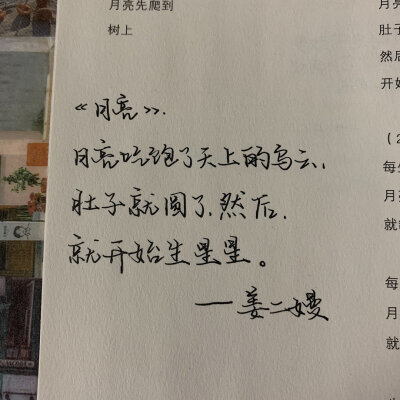 月亮先爬到
树上
《月亮》.
月亮吃饱了天上的乌云,
肚子就圆了.然后.
就开始生星星。
——姜二嫚
月亮
肚子
然后
开始
(2
每
月
就
每
月
就